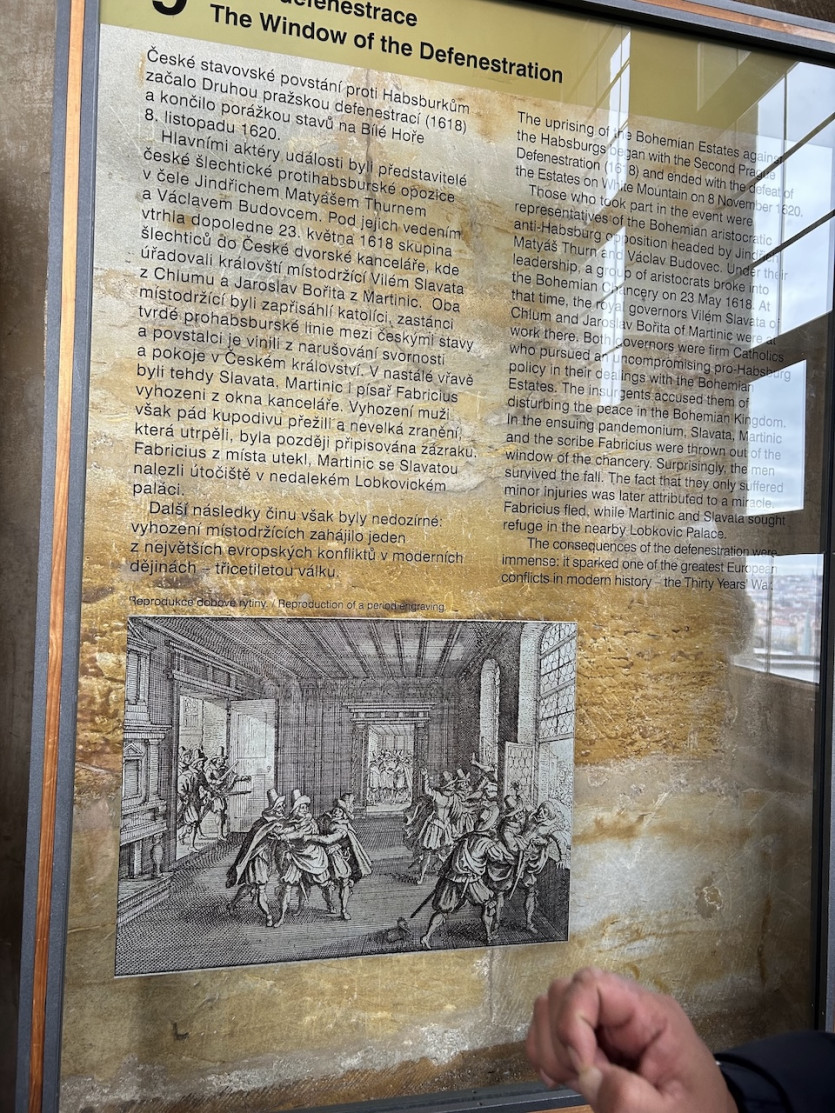 defenestrace
The Window of the Defenestration
České stavovské povstání proti Habsburkům
začalo Druhou pražskou defenestrací (1618)
a končilo porážkou stavů na Bílé Hoře
8. listopadu 1620.
Hlavními aktéry události byli představitelé
české šlechtické protihabsburské opozice
v čele Jindřichem Matyášem Thurnem
a Václavem Budovcem. Pod jejich vedením
vtrhla dopoledne 23. května 1618 skupina
šlechticů do České dvorské kanceláře, kde
úřadovali královští místodržící Vilém Slavata
z Chlumu a Jaroslav Bořita z Martinic. Oba
místodržící byli zapřisáhlí katolíci, zastánci
tvrdé prohabsburské linie mezi českými stavy
a povstalci je vinili z narušování svornosti
a pokoje v Českém království. V nastálé vřavě
byli tehdy Slavata, Martinic i písař Fabricius
vyhozeni z okna kanceláře. Vyhození muži
však pád kupodivu přežili a nevelká zranění,
která utrpěli, byla později připisována zázraku.
Fabricius z místa utekl, Martinic se Slavatou
nalezli útočiště v nedalekém Lobkovickém
paláci.
Další následky činu však byly nedozírné:
vyhození místodržících zahájilo jeden
z největších evropských konfliktů v moderních
dějinách – třicetiletou válku.
The uprising of the Bohemian Estates against
the Habsburgs began with the Second Prague
Defenestration (1618) and ended with the defeat of
the Estates on White Mountain on 8 November 1620.
Those who took part in the event were
representatives of the Bohemian aristocratic
anti-Habsburg opposition headed by Jindřich
Matyáš Thurn and Václav Budovec. Under their
leadership, a group of aristocrats broke into
the Bohemian Chancery on 23 May 1618. At
that time, the royal governors Vilém Slavata of
Chlum and Jaroslav Bořita of Martinic were at
work there. Both governors were firm Catholics
who pursued an uncompromising pro-Habsburg
policy in their dealings with the Bohemian
Estates. The insurgents accused them of
disturbing the peace in the Bohemian Kingdom.
In the ensuing pandemonium, Slavata, Martinic
and the scribe Fabricius were thrown out of the
window of the chancery. Surprisingly, the men
survived the fall. The fact that they only suffered
minor injuries was later attributed to a miracle.
Fabricius fled, while Martinic and Slavata sought
refuge in the nearby Lobkovic Palace.
The consequences of the defenestration were
immense: it sparked one of the greatest European
conflicts in modern history – the Thirty Years' War.
Reprodukce dobové rytiny. / Reproduction of a period engraving.